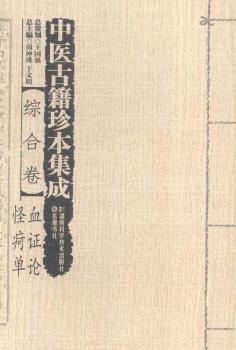 中医古籍珍本集成
总策划◎王国强
总主编◎周仲瑛 于文明
【综合卷】
血证论
怪疴单
湖南科学技术出版社
岳麓书社